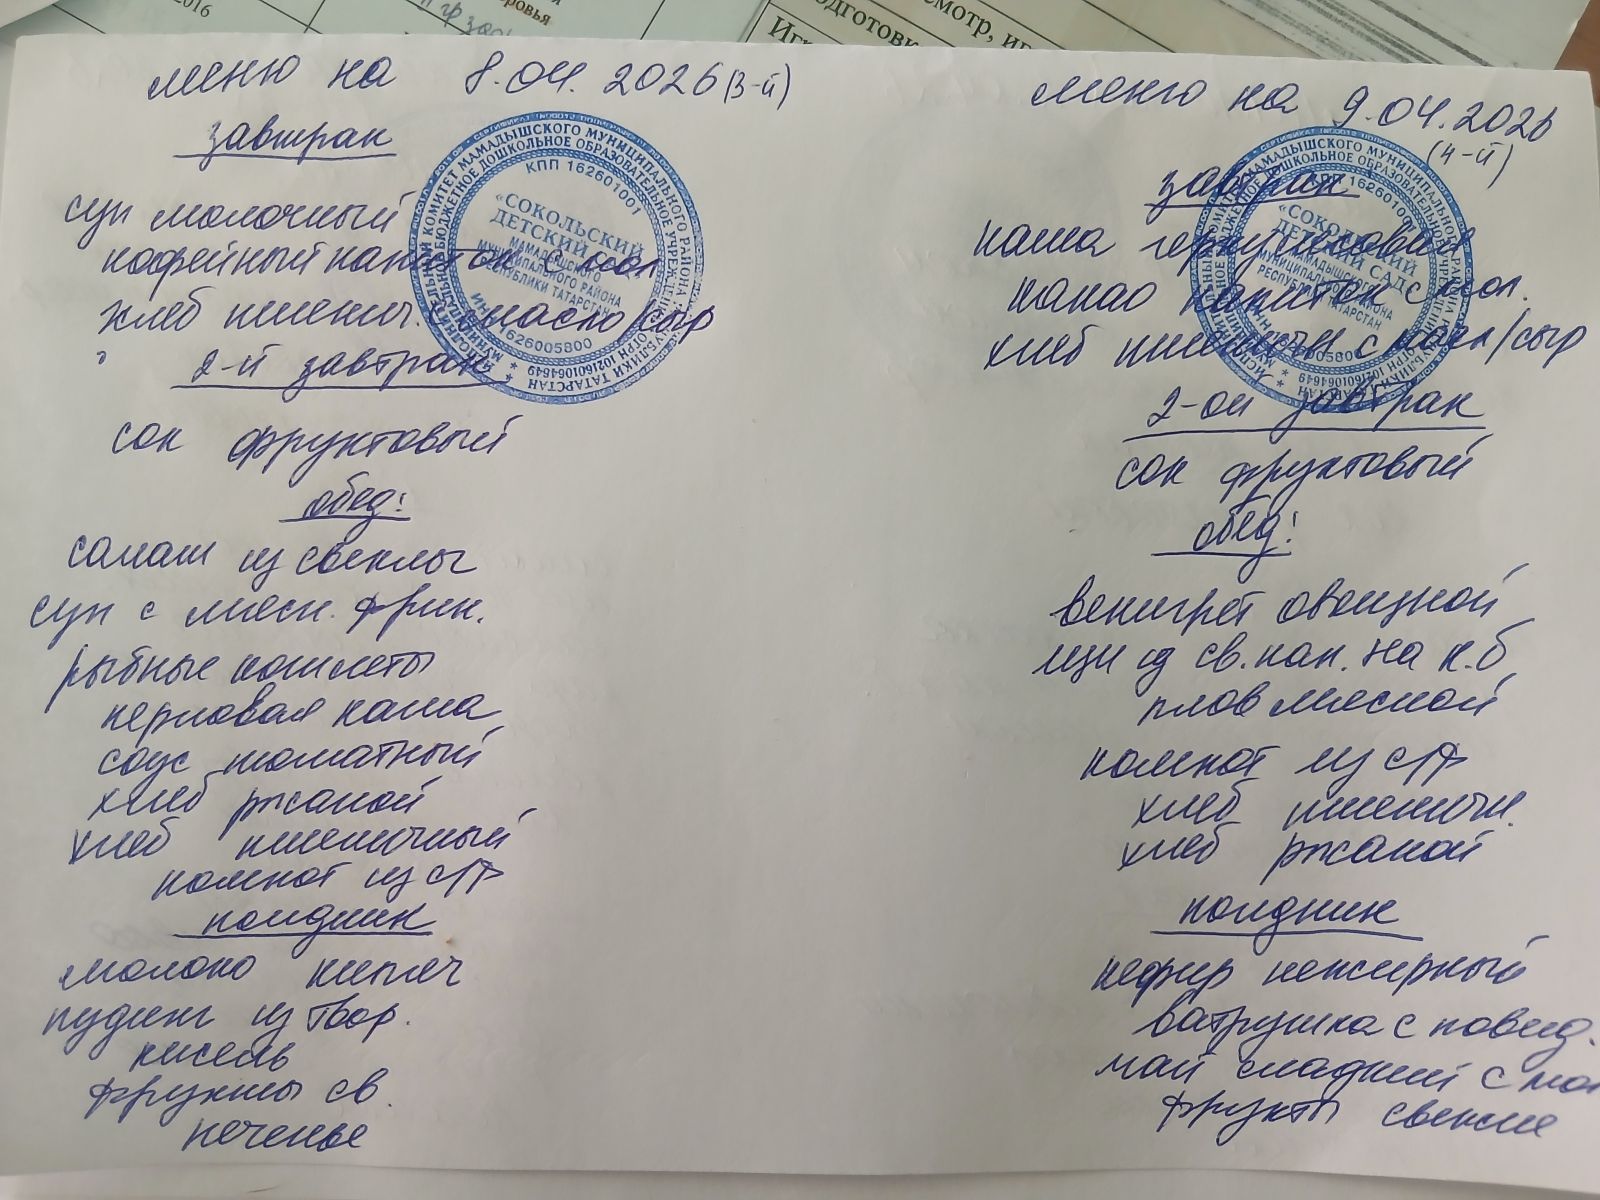 2016
ровья
смотр, иг
одготовк
Иг
меню на 8.04.2026 (3-й)
завтрак
суп молочный
кофейный напиток с мол
хлеб пшенич. с масло/сыр
2-й завтрак
сок фруктовый
обед:
салат из свеклы
суп с мясн. фрик.
рыбные котлеты
перловая каша
соус томатный
хлеб ржаной
хлеб пшеничный
компот из с/ф
полдник
молоко кипяч
пудинг из твор.
кисель
фрукты св.
печенье
«СОКОЛЬСКИЙ
ДЕТСКИЙ САД»
МАМАДЫШСКОГО
МУНИЦИПАЛЬНОГО РАЙОНА
РЕСПУБЛИКИ ТАТАРСТАН
КПП 162601001
ИНН 1626005800
меню на 9.04.2026
(4-й)
завтрак
каша геркулесовая
какао напиток с мол.
хлеб пшеничн с масл/сыр
2-ой завтрак
сок фруктовый
обед:
венигрет овощной
щи из св. кап. на к.б
плов мясной
компот из с/ф
хлеб пшеничн.
хлеб ржаной
полдник
кефир нежирный
ватрушка с повид.
чай сладкий с мол
фрукты свежие
«СОКОЛЬСКИЙ
ДЕТСКИЙ САД»
МАМАДЫШСКОГО
МУНИЦИПАЛЬНОГО
РЕСПУБЛИКИ ТАТАРСТАН